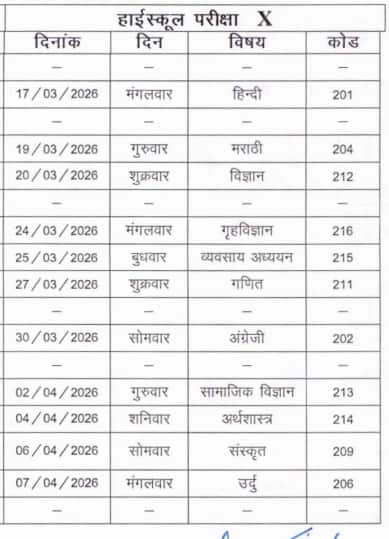 हाईस्कूल परीक्षा X
दिनांक दिन विषय कोड
– – – –
17/03/2026 मंगलवार हिन्दी 201
– – – –
19/03/2026 गुरुवार मराठी 204
20/03/2026 शुक्रवार विज्ञान 212
– – – –
24/03/2026 मंगलवार गृहविज्ञान 216
25/03/2026 बुधवार व्यवसाय अध्ययन 215
27/03/2026 शुक्रवार गणित 211
– – – –
30/03/2026 सोमवार अंग्रेजी 202
– – – –
02/04/2026 गुरुवार सामाजिक विज्ञान 213
04/04/2026 शनिवार अर्थशास्त्र 214
06/04/2026 सोमवार संस्कृत 209
07/04/2026 मंगलवार उर्दु 206
– – – –